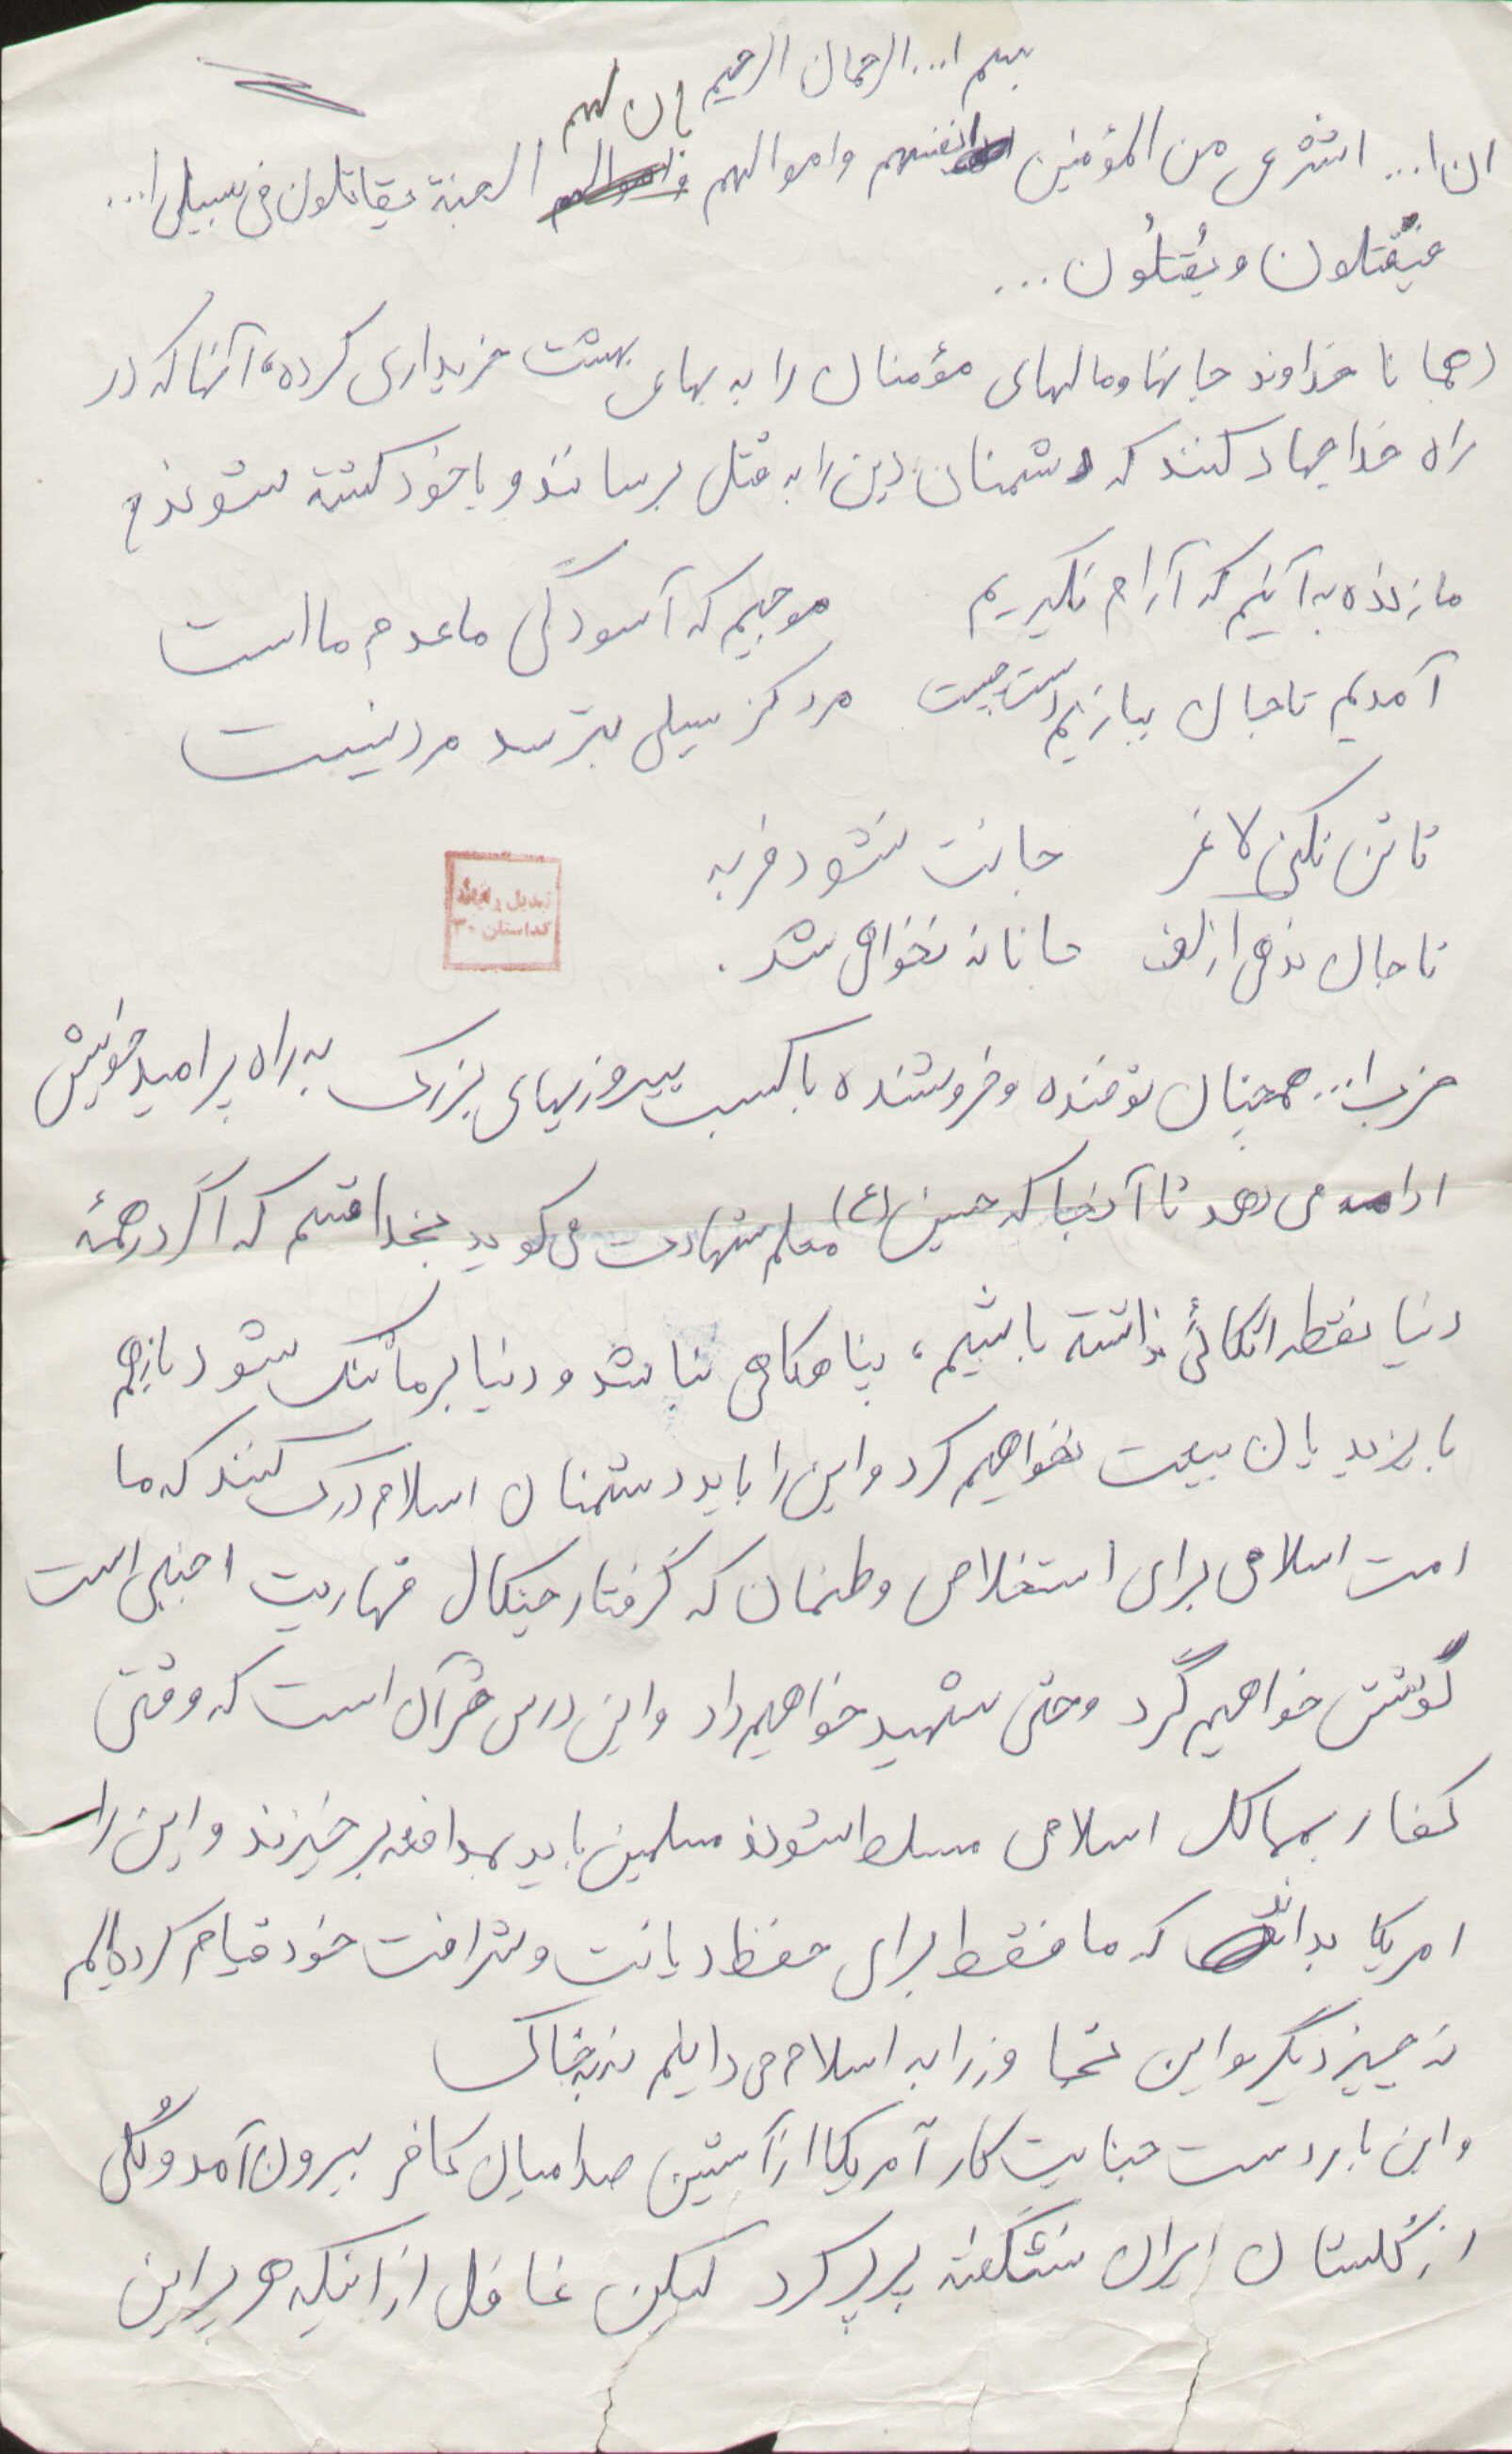 بسم ا... الرحمان الرحیم
بان لهم
ان ا... اشتری من المؤمنین انفسهم و اموالهم الجنة یقاتلون فی سبیل ا...
فیَقتلون و یُقتلُون ...
(همانا خداوند جانها و مالهای مؤمنان را به بهای بهشت خریداری کرده، آنها که در
راه خدا جهاد کنند که دشمنان دین را به قتل برسانند و یا خود کشته شوند)
ما زنده به آنیم که آرام نگیریم موجیم که آسودگی ما عدم ما است
آمدیم تا جان ببازیم دست چیست مرد کز سیلی بترسد مرد نیست
تا تن نکنی لاغر جانت نشود فربه
تا جان ندهی از کف جانانه نخواهی شد.
تبدیل و افیلد
کداستان ۳۰
حزب ا... همچنان توفنده و خروشنده با کسب پیروزیهای بزرگ به راه پر امید خویش
ادامه می دهد تا آنجا که حسین (ع) معلم شهادت می گوید بخدا قسم که اگر در همهٔ
دنیا نقطه اتکائی نداشته باشیم، پناهگاهی نباشد و دنیا بر ما تنگ شود باز هم
با یزیدیان بیعت نخواهیم کرد و این را باید دشمنان اسلام درک کنند که ما
امت اسلامی برای استخلاص وطنمان که گرفتار چنگال قهاریت اجنبی است
کوشش خواهیم کرد و حتی شهید خواهیم داد و این درس قرآن است که وقتی
کفار بممالک اسلامی مسلط شوند مسلمین باید بمدافعه برخیزند و این را
امریکا بداند که ما فقط برای حفظ دیانت و شرافت خود قیام کرده ایم
نه چیز دیگر و این تجاوز را به اسلام می دانیم نه به خاک
و این بار دست جنایت کار آمریکا از آستین صدامیان کافر بیرون آمد و گلی
از گلستان ایران نشکفته پرپر کرد لیکن غافل از اینکه هر پر این